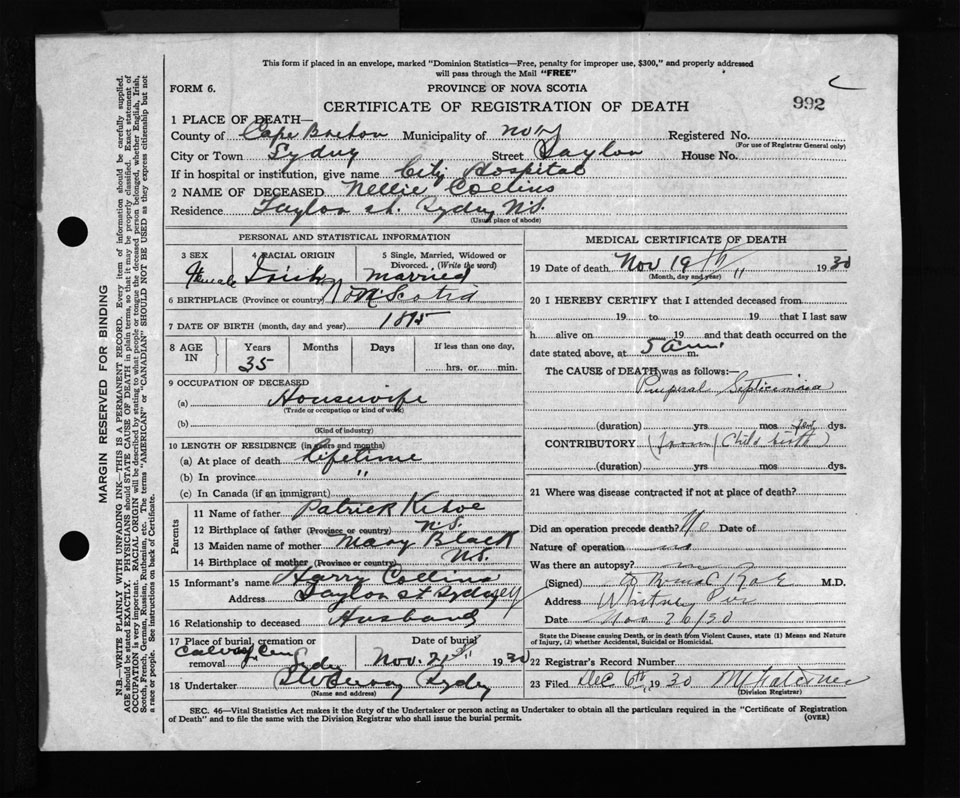 This form if placed in an envelope, marked "Dominion Statistics—Free, penalty for improper use, $300," and properly addressed
will pass through the Mail "FREE"
FORM 6. PROVINCE OF NOVA SCOTIA
CERTIFICATE OF REGISTRATION OF DEATH 992
1 PLACE OF DEATH—
County of Cape Breton Municipality of Registered No.
(For use of Registrar General only)
City or Town Sydney Street Taylor House No.
If in hospital or institution, give name City Hospital
2 NAME OF DECEASED Nellie Collins
Residence Taylor st. Sydney N.S.
(Usual place of abode)
PERSONAL AND STATISTICAL INFORMATION
3 SEX 4 RACIAL ORIGIN 5 Single, Married, Widowed or
Divorced. (Write the word)
Female Irish Married
6 BIRTHPLACE (Province or country) Scotia
7 DATE OF BIRTH (month, day and year) 1895
8 AGE IN Years Months Days If less than one day,
35 hrs. or min.
9 OCCUPATION OF DECEASED
(a) Housewife
(Trade or occupation or kind of work)
(b)
(Kind of industry)
10 LENGTH OF RESIDENCE (in years and months)
(a) At place of death Lifetime
(b) In province "
(c) In Canada (if an immigrant)
Parents
11 Name of father Patrick Kehoe
12 Birthplace of father (Province or country) N.S.
13 Maiden name of mother Mary Black
14 Birthplace of mother (Province or country) N.S.
15 Informant's name Harry Collins
Address Taylor st Sydney
16 Relationship to deceased Husband
17 Place of burial, cremation or removal Date of burial
Calvary Cem Sydney Nov. 21 1930
18 Undertaker Sydney
(Name and address)
MEDICAL CERTIFICATE OF DEATH
19 Date of death Nov 19th 1930
(Month, day and year)
20 I HEREBY CERTIFY that I attended deceased from
19 to 19 that I last saw
h alive on 19 and that death occurred on
date stated above, at 5 am. m.
The CAUSE of DEATH was as follows:—
Puerperal Septicemia
(duration) yrs mos dys.
CONTRIBUTORY (from) (Child birth)
(duration) yrs mos dys.
21 Where was disease contracted if not at place of death?
Did an operation precede death? No Date of
Nature of operation no
Was there an autopsy? no
(Signed) M.D.
Address Whitney Pier
Date Nov 26/30
State the Disease causing Death, or in death from Violent Causes, state (1) Means and Nature
of Injury, (2) whether Accidental, Suicidal or Homicidal.
22 Registrar's Record Number
23 Filed Dec 6th 1930
(Division Registrar)
SEC. 46—Vital Statistics Act makes it the duty of the Undertaker or person acting as Undertaker to obtain all the particulars required in the "Certificate of Registration
of Death" and to file the same with the Division Registrar who shall issue the burial permit. (OVER)
MARGIN RESERVED FOR BINDING
N.B.—WRITE PLAINLY WITH UNFADING INK—THIS IS A PERMANENT RECORD. Every item of information should be carefully supplied.
AGE should be stated EXACTLY. PHYSICIANS should STATE CAUSE OF DEATH in plain terms, so that it may be properly classified. Exact statement of
OCCUPATION is very important. RACIAL ORIGIN will be described by stating to what people or tongue the deceased person belonged, whether English, Irish,
Scotch, French, German, Russian, Ruthenian, etc. The terms "AMERICAN" or "CANADIAN" SHOULD NOT BE USED as they express citizenship but not
a race or people. See instructions on back of Certificate.